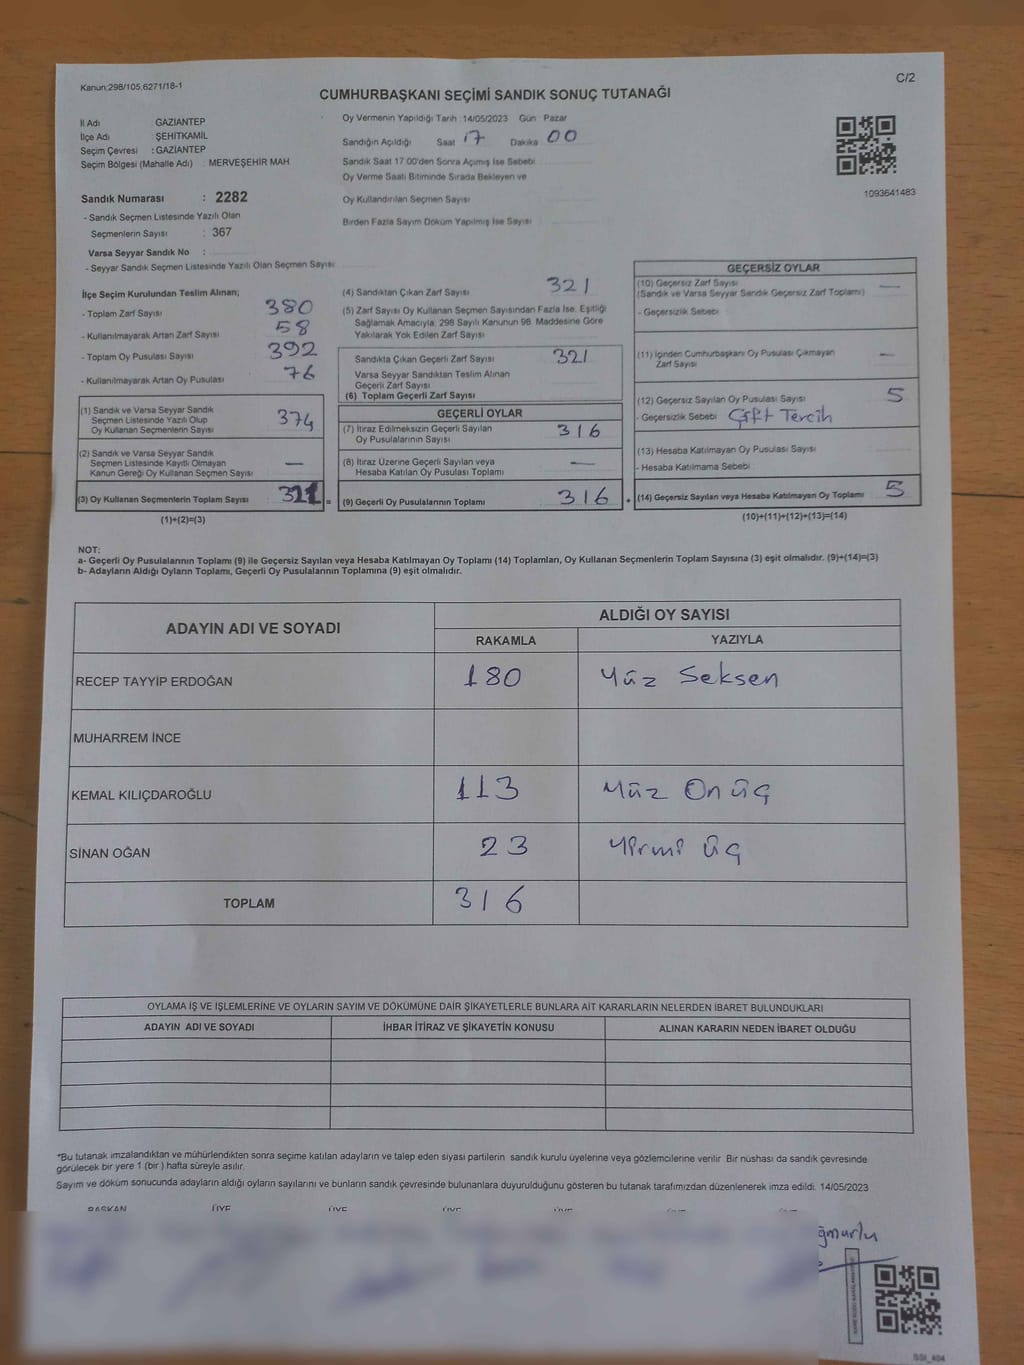 Kanun:298/105,6271/18-1
C/2
CUMHURBAŞKANI SEÇİMİ SANDIK SONUÇ TUTANAĞI
İl Adı GAZİANTEP
İlçe Adı : ŞEHİTKAMİL
Seçim Çevresi : GAZİANTEP
Seçim Bölgesi (Mahalle Adı) : MERVEŞEHİR MAH
Sandık Numarası : 2282
- Sandık Seçmen Listesinde Yazılı Olan
Seçmenlerin Sayısı : 367
Varsa Seyyar Sandık No :
- Seyyar Sandık Seçmen Listesinde Yazılı Olan Seçmen Sayısı
Oy Vermenin Yapıldığı Tarih :14/05/2023 Gün Pazar
Sandığın Açıldığı Saat 17 Dakika 00
Sandık Saat 17.00'den Sonra Açımış İse Sebebi
Oy Verme Saati Bitiminde Sırada Bekleyen ve
Oy Kullandırılan Seçmen Sayısı
Birden Fazla Sayım Döküm Yapılmış İse Sayısı
1093641483
İlçe Seçim Kurulundan Teslim Alınan;
- Toplam Zarf Sayısı 380
- Kullanılmayarak Artan Zarf Sayısı 58
- Toplam Oy Pusulası Sayısı 392
- Kullanılmayarak Artan Oy Pusulası 76
(1) Sandık ve Varsa Seyyar Sandık
Seçmen Listesinde Yazılı Olup
Oy Kullanan Seçmenlerin Sayısı 374
(2) Sandık ve Varsa Seyyar Sandık
Seçmen Listesinde Kayıtlı Olmayan
Kanun Gereği Oy Kullanan Seçmen Sayısı —
(3) Oy Kullanan Seçmenlerin Toplam Sayısı 321 =
(1)+(2)=(3)
(4) Sandıktan Çıkan Zarf Sayısı 321
(5) Zarf Sayısı Oy Kullanan Seçmen Sayısından Fazla İse, Eşitliği
Sağlamak Amacıyla, 298 Sayılı Kanunun 98. Maddesine Göre
Yakılarak Yok Edilen Zarf Sayısı
Sandıkta Çıkan Geçerli Zarf Sayısı 321
Varsa Seyyar Sandıktan Teslim Alınan
Geçerli Zarf Sayısı
(6) Toplam Geçerli Zarf Sayısı
GEÇERLİ OYLAR
(7) İtiraz Edilmeksizin Geçerli Sayılan
Oy Pusulalarının Sayısı 316
(8) İtiraz Üzerine Geçerli Sayılan veya
Hesaba Katılan Oy Pusulası Toplamı —
(9) Geçerli Oy Pusulalarının Toplamı 316 +
GEÇERSİZ OYLAR
(10) Geçersiz Zarf Sayısı —
(Sandık ve Varsa Seyyar Sandık Geçersiz Zarf Toplamı)
- Geçersizlik Sebebi
(11) İçinden Cumhurbaşkanı Oy Pusulası Çıkmayan
Zarf Sayısı —
(12) Geçersiz Sayılan Oy Pusulası Sayısı 5
- Geçersizlik Sebebi Çift Tercih
(13) Hesaba Katılmayan Oy Pusulası Sayısı
- Hesaba Katılmama Sebebi
(14) Geçersiz Sayılan veya Hesaba Katılmayan Oy Toplamı 5
(10)+(11)+(12)+(13)=(14)
NOT:
a- Geçerli Oy Pusulalarının Toplamı (9) ile Geçersiz Sayılan veya Hesaba Katılmayan Oy Toplamı (14) Toplamları, Oy Kullanan Seçmenlerin Toplam Sayısına (3) eşit olmalıdır. (9)+(14)=(3)
b- Adayların Aldığı Oyların Toplamı, Geçerli Oy Pusulalarının Toplamına (9) eşit olmalıdır.
ADAYIN ADI VE SOYADI ALDIĞI OY SAYISI
RAKAMLA YAZIYLA
RECEP TAYYİP ERDOĞAN 180 Yüz Seksen
MUHARREM İNCE
KEMAL KILIÇDAROĞLU 113 Yüz On üç
SİNAN OĞAN 23 Yirmi üç
TOPLAM 316
OYLAMA İŞ VE İŞLEMLERİNE VE OYLARIN SAYIM VE DÖKÜMÜNE DAİR ŞİKAYETLERLE BUNLARA AİT KARARLARIN NELERDEN İBARET BULUNDUKLARI
ADAYIN ADI VE SOYADI İHBAR İTİRAZ VE ŞİKAYETİN KONUSU ALINAN KARARIN NEDEN İBARET OLDUĞU
*Bu tutanak imzalandıktan ve mühürlendikten sonra seçime katılan adayların ve talep eden siyasi partilerin sandık kurulu üyelerine veya gözlemcilerine verilir. Bir nüshası da sandık çevresinde
görülecek bir yere 1 (bir ) hafta süreyle asılır.
Sayım ve döküm sonucunda adayların aldığı oyların sayılarını ve bunların sandık çevresinde bulunanlara duyurulduğunu gösteren bu tutanak tarafımızdan düzenlenerek imza edildi. 14/05/2023
BAŞKAN ÜYE ÜYE ÜYE ÜYE ÜYE ÜYE
ğmurlu